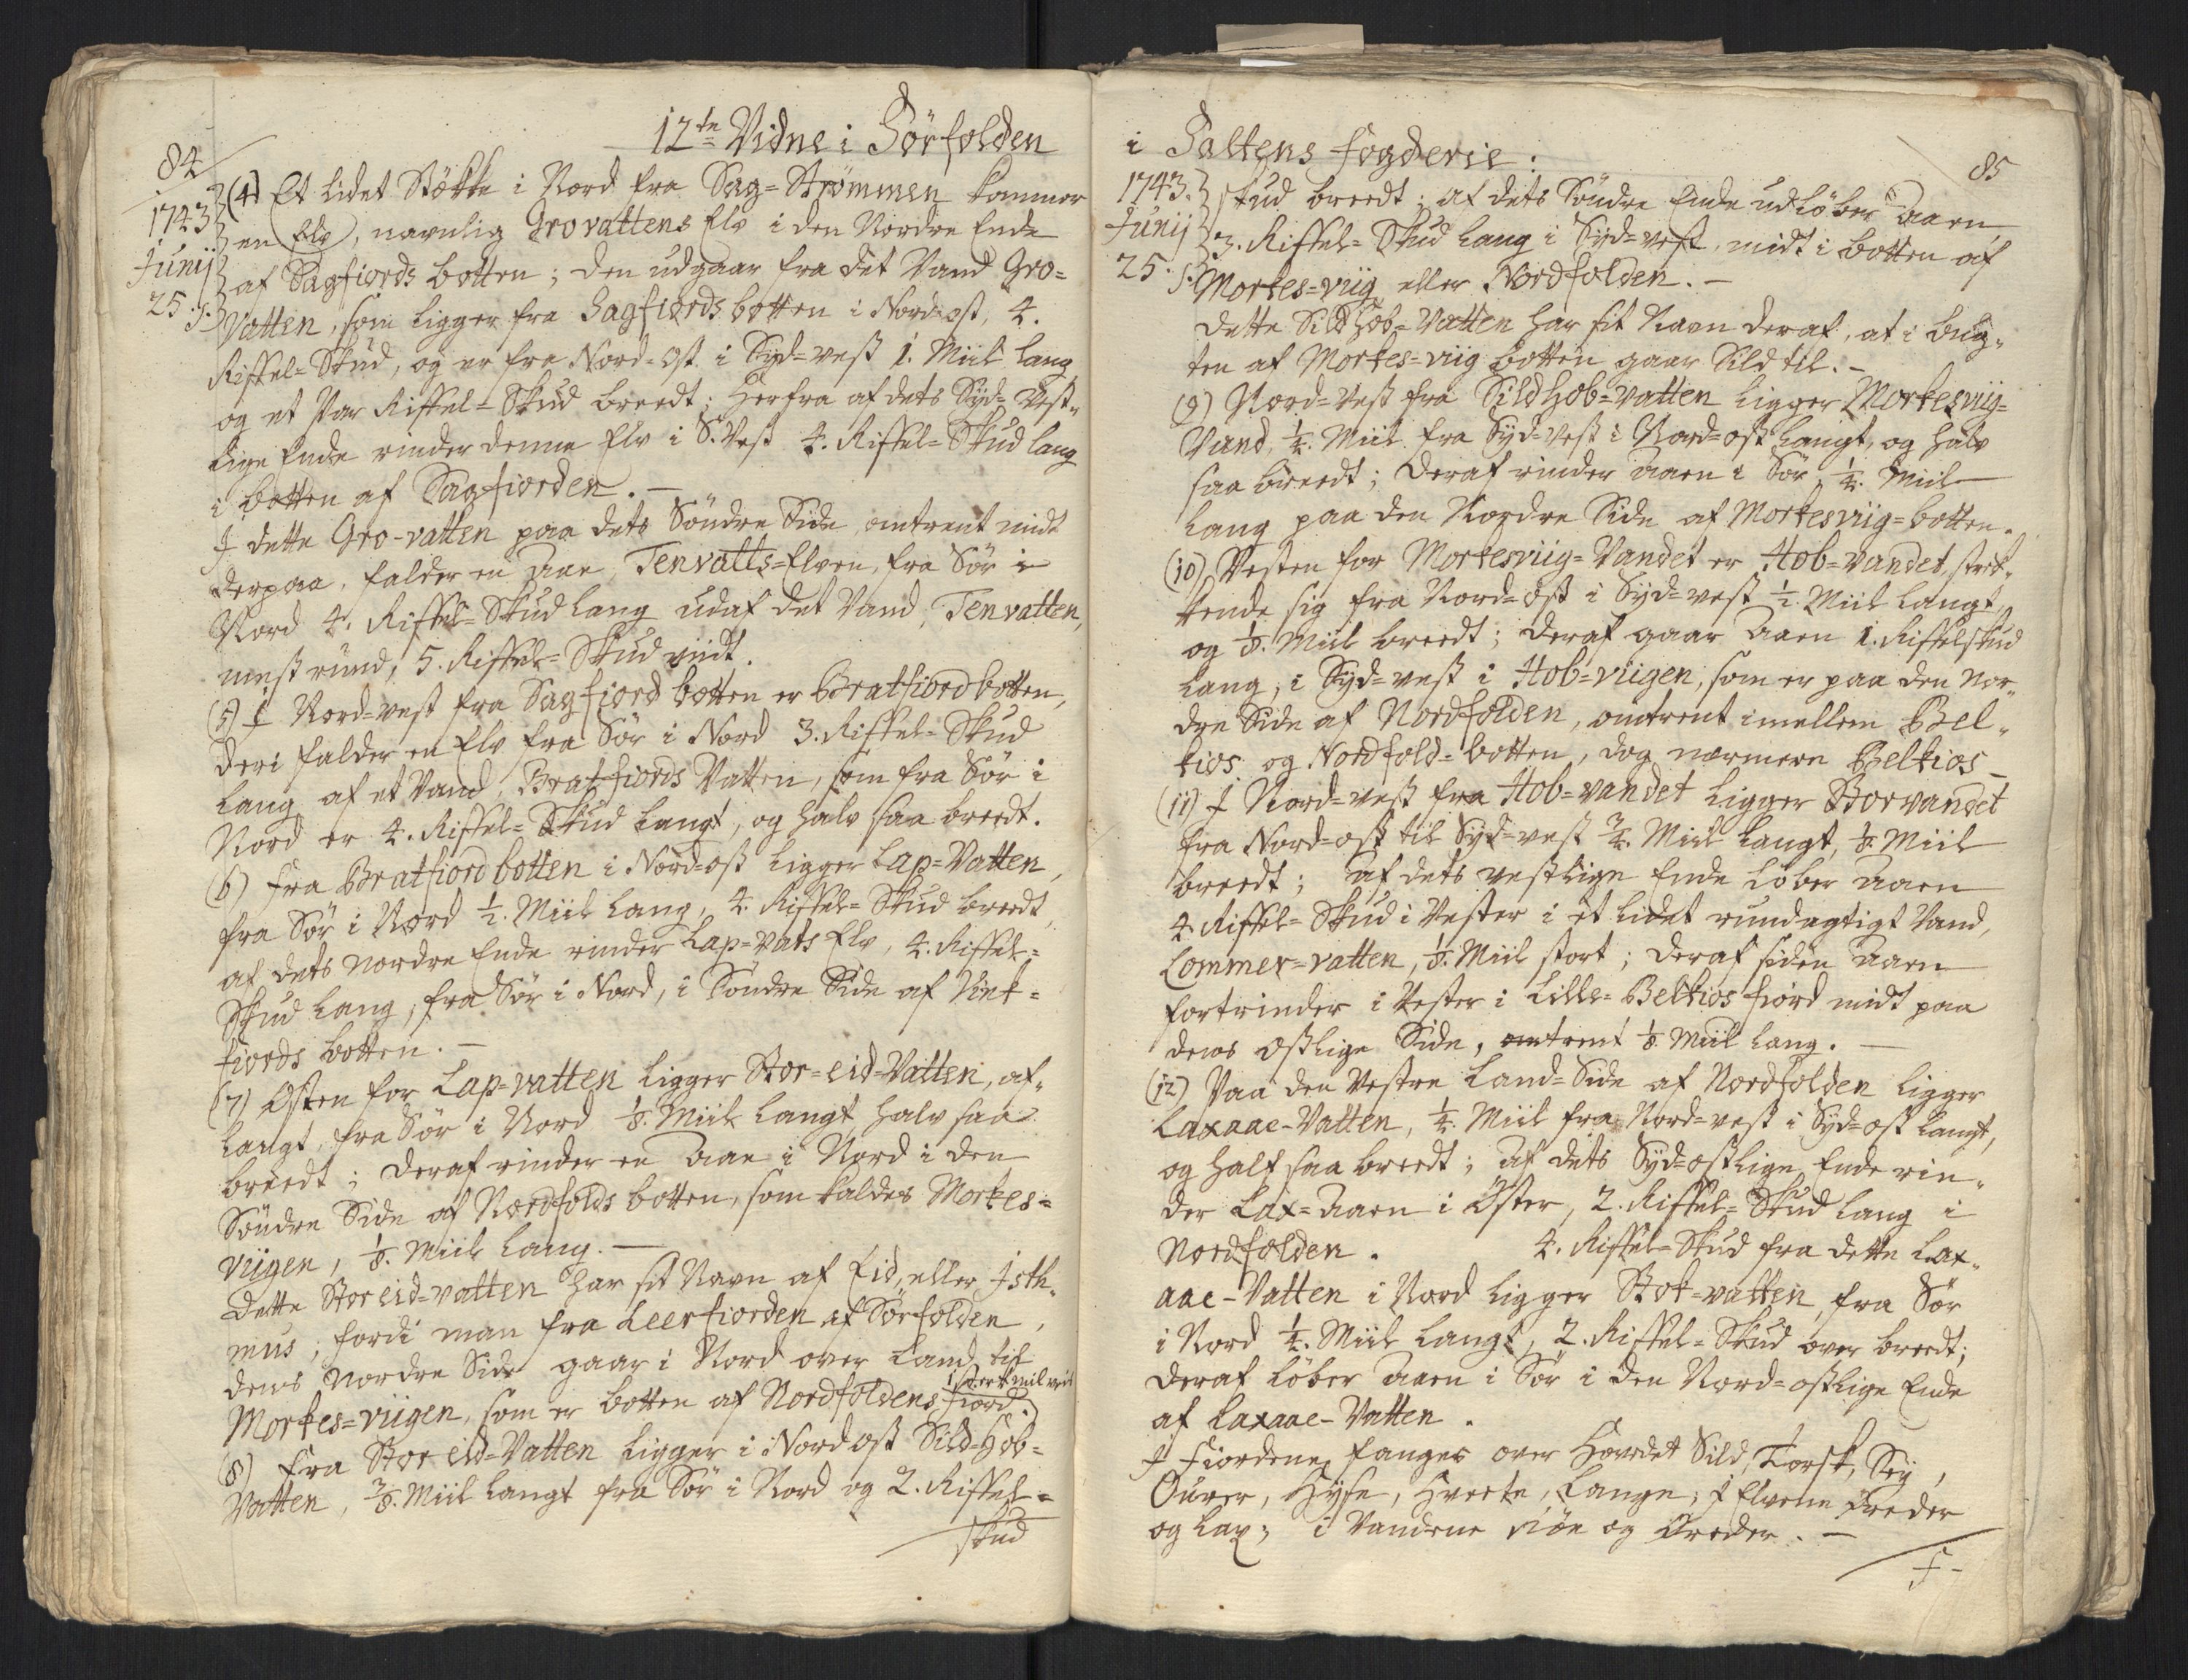 12te Vidne i Sörfolden
84
1743
Junij
25. s.
(4) Et lidet Stökke i Nord fra Sag=Strömmen kommer
en Elv, navnlig Grovattens Elv i den Nordre Ende
af Sagfiords botten; den udgaar fra det Vand Gro=
Vatten, som ligger fra Sagfiords botten i Nord-ost, 4.
Riffel=Skud, og er fra Nord-Ost i Syd=vest 1. Miil lang
og et Par Riffel=Skud breedt; Herfra af dets Syd=Vest=
lige Ende rinder denne Elv i S.Vest 4. Riffel=Skud lang
i botten af Sagfiorden. —
J dette Gro-vatten paa dets Söndre Side omtrent midt
derpaa, falder en Aae, Tenvatts=Elven, fra Sör i
Nord 4. Riffel=Skud lang udaf det Vand, Tenvatten,
mest rund, 5. Riffel=Skud viidt.
(5) J Nord=vest fra Sagfiord botten er Bratfiord botten,
deri falder en Elv fra Sör i Nord 3. Riffel=Skud
lang af et Vand, Bratfiords Vatten, som fra Sör i
Nord er 4. Riffel=Skud langt, og halv saa breedt.
(6) Fra Bratfiord botten i Nord=ost ligger Lap=Vatten,
fra Sör i Nord ½. Miil lang, 4. Riffel=Skud breedt,
af dets nordre Ende rinder Lap=vats Elv, 4. Riffel=
Skud lang, fra Sör i Nord, i Söndre Side af Vint=
fiords botten. —
(7) Osten for Lap=vatten ligger Stor=eid=Vatten, af=
langt, fra Sör i Nord ⅛. Miil langt, halv saa
breedt; deraf rinder en Aae i Nord i den
Söndre Side af Nordfolds botten, som kaldes Morkes=
viigen, ⅛. Miil lang. —
Dette Stor eid=vatten har sit Navn af Eid, eller Jsth=
mus; fordi man fra Leerfiorden af Sörfolden,
dens nordre Side gaar i Nord over Land til
Morkes=viigen, som er botten af Nordfoldens Fiord.
(8) Fra Stor eid=Vatten ligger i Nord ost Sild=Hob=
Vatten, ⅜. Miil langt fra Sör i Nord og 2. Riffel=
skud
i Saltens Fogderie:
85
1743.
Junij
25. s.
skud breedt; af dets Söndre Ende udlöber Aaen
3. Riffel=Skud lang i Syd=vest, midt i botten af
Morkes=viig eller Nordfolden. —
Dette Sildhob=Vatten har sit Navn deraf, at i bug=
ten af Morkes=viig botten gaar Sild til. —
(9) Nord=Vest fra Sildhob=vatten ligger Morkesviig=
Vand, ¼. Miil fra Syd=Vest i Nord=ost langt, og halv
saa breedt; deraf rinder Aaen i Sör, ¼. Miil
lang paa den Nordre Side af Morkesviig=botten.
(10) Vesten for Morkesviig=Vandet er Hob=vandet, strek=
kende sig fra Nord=ost i Syd=vest ½. Miil langt,
og ⅛. Miil breedt; deraf gaar Aaen 1. Riffelskud
lang, i Syd=vest i Hob=viigen, som er paa den Nor=
dre Side af Nordfolden, omtrent imellem Bel=
kios og Nordfold=botten, dog nærmere Belkios —
(11) J Nord=vest fra Hob=vandet ligger Storvandet
fra Nord=ost til Syd=vest ¾. Miil langt, ⅛. Miil
breedt; af dets vestlige Ende löber Aaen
4. Riffel=Skud i Vester i et lidet rundagtigt Vand,
Lommer=vatten, ⅛. Miil stort; deraf siden Aaen
fortrinder i Vester i Lille=Belkios fiord midt paa
dens ostlige Side, omtrent ⅛. Miil lang. —
(12) Paa den Vestre Land=Side af Nordfolden ligger
Laxaae-Vatten, ¼. Miil fra Nord=vest i Syd=ost langt,
og half saa breedt; af dets Syd=ostlige Ende rin=
der Lax=Aaen i Öster, 2. Riffel=Skud lang i
Nordfolden. 4. Riffel=Skud fra dette Lax=
aae-Vatten i Nord ligger Stok=vatten, fra Sör
i Nord ¼. Miil langt, 2. Riffel=Skud over breedt;
deraf löber Aaen i Sör i den Nord=ostlige Ende
af Laxaae-Vatten.
J Fiordene fanges over Hovedet Sild, Torsk, Sey,
Ourer, Hyse, Hveete, Lange; J Elvene Öreder
og Lax; i Vandene Röe og Öreder. —
J-